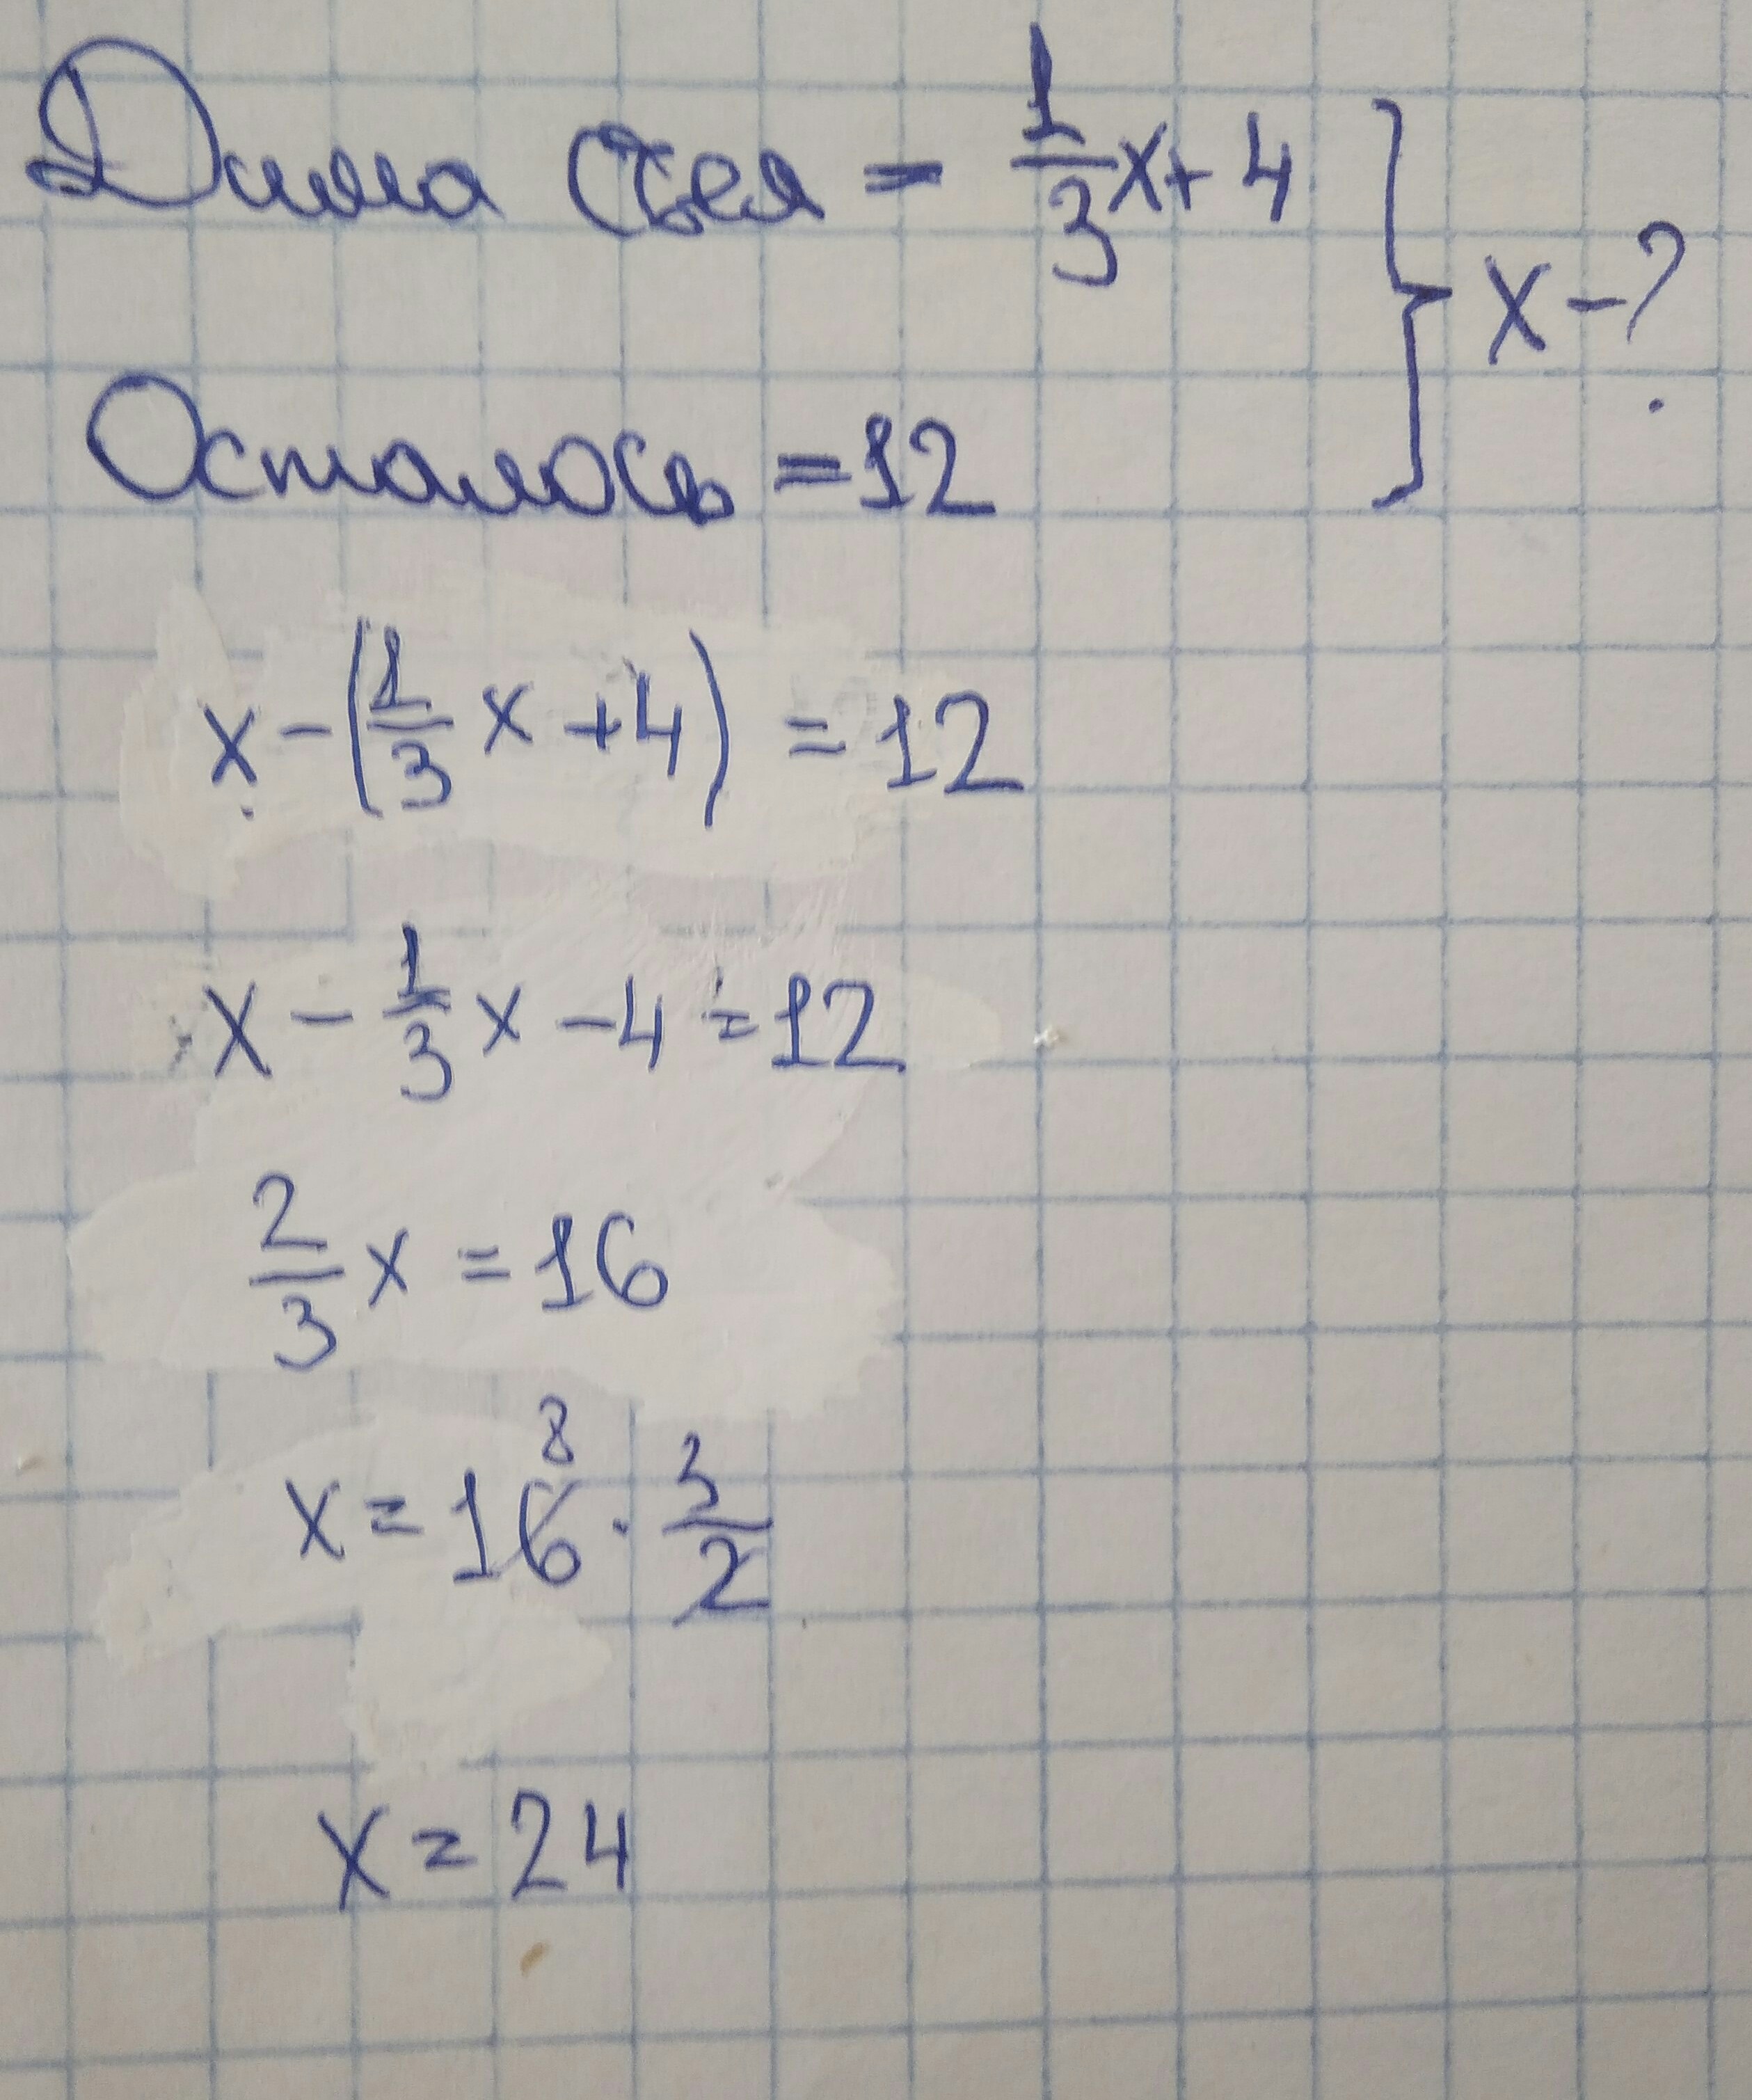 Дима съел = 1/3 x + 4 } x - ?
Осталось = 12
x - (1/3 x + 4) = 12
x - 1/3 x - 4 = 12
2/3 x = 16
8
x = 16 · 3/2
x = 24